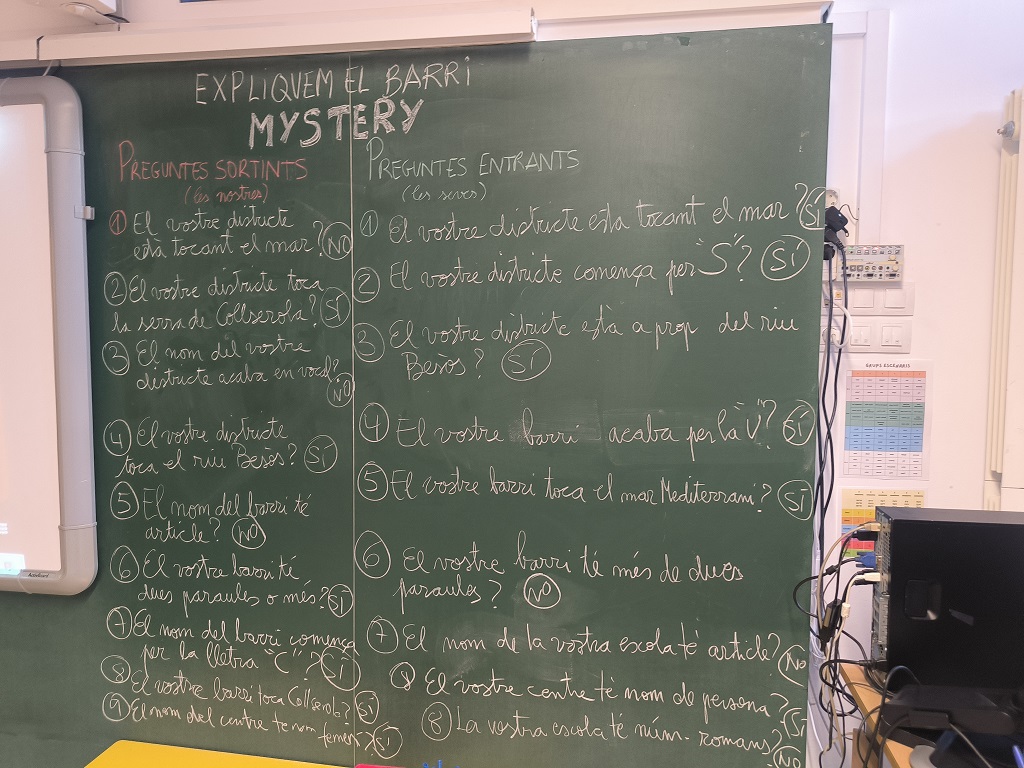 EXPLIQUEM EL BARRI
MYSTERY
PREGUNTES SORTINTS
(les nostres)
1 El vostre districte
està tocant el mar? NO
2 El vostre districte toca
la serra de Collserola? SÍ
3 El nom del vostre
districte acaba en vocal?
NO
4 El vostre districte
toca el riu Besòs? SÍ
5 El nom del barri té
article? NO
6 El vostre barri té
dues paraules o més? SÍ
7 El nom del barri comença
per la lletra "C"? SÍ
8 El vostre barri toca Collserola? SÍ
9 El nom del centre te nom femení? SÍ
PREGUNTES ENTRANTS
(les seves)
1 El vostre districte esta tocant el mar? SÍ
2 El vostre districte comença per "S"? SÍ
3 El vostre districte està a prop del riu
Besòs? SÍ
4 El vostre barri acaba per la "V"? SÍ
5 El vostre barri toca el mar Mediterrani? SÍ
6 El vostre barri té més de dues
paraules? NO
7 El nom de la vostra escola té article? No
El vostre centre té nom de persona? SÍ
8 La vostra escola té núm. romans? No
GRUPS ESCENARIS
ActivBoard